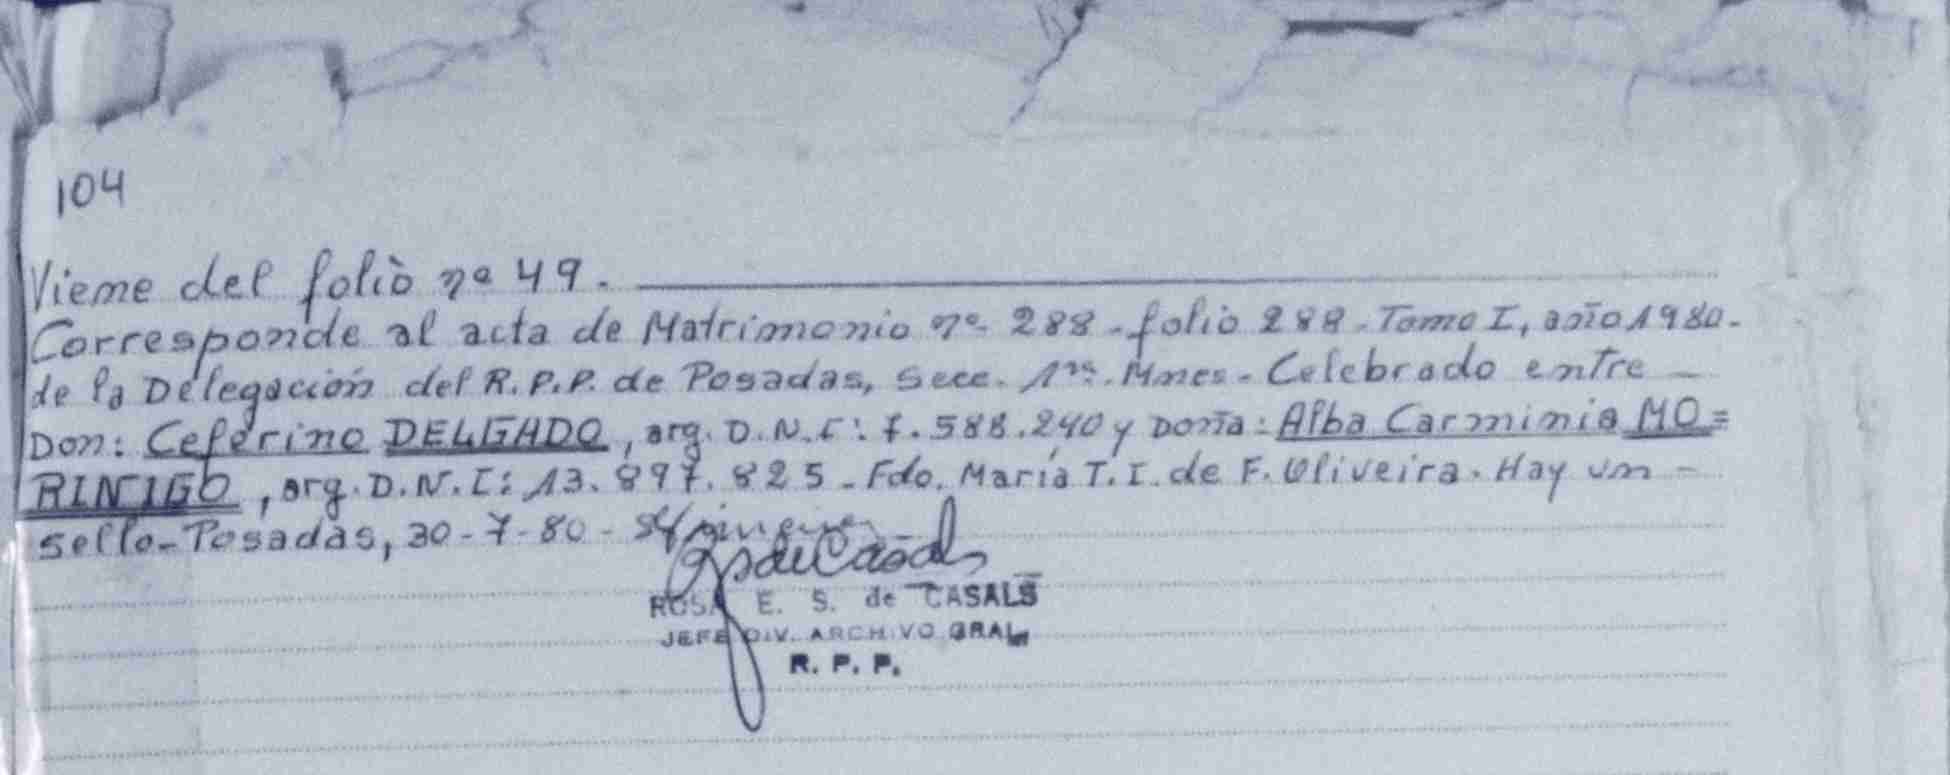 104
Viene del folio nº 49.
Corresponde al acta de Matrimonio nº 288 - folio 288 - Tomo I, año 1980 -
de la Delegación del R.P.P. de Posadas, Secc. 1ra. Mnes - Celebrado entre -
Don: Ceferino DELGADO, arg. D.N.I: 7.588.240 y Doña: Alba Carminia MO=
RINIGO, arg. D.N.I: 13.897.825 - Fdo. María T. I. de F. Oliveira. Hay un -
sello - Posadas, 30-7-80 -
ROSA E. S. de CASALS
JEFE DIV. ARCHIVO GRAL.
R. P. P.